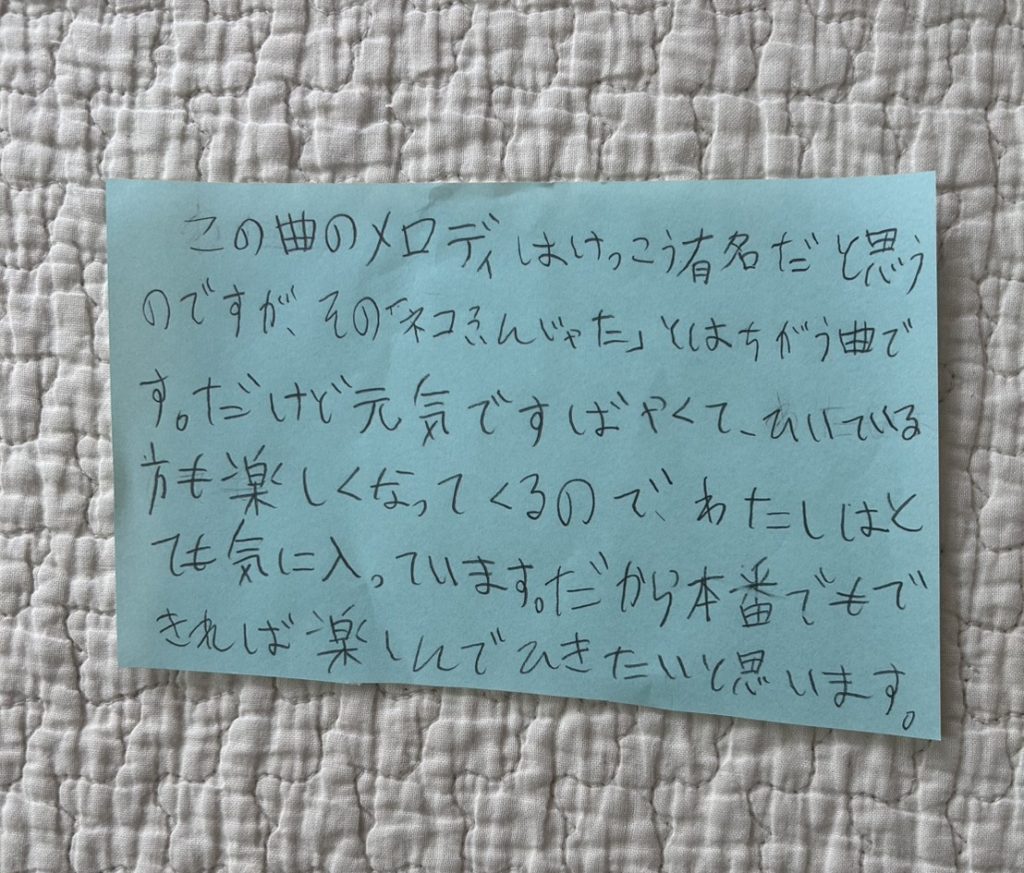 この曲のメロディはけっこう有名だと思う
のですが、その「ネコふんじゃた」とはちがう曲で
す。だけど元気ですばやくて、ひいている
方も楽しくなってくるので、わたしはと
ても気に入っています。だから本番でもで
きれば楽しんでひきたいと思います。